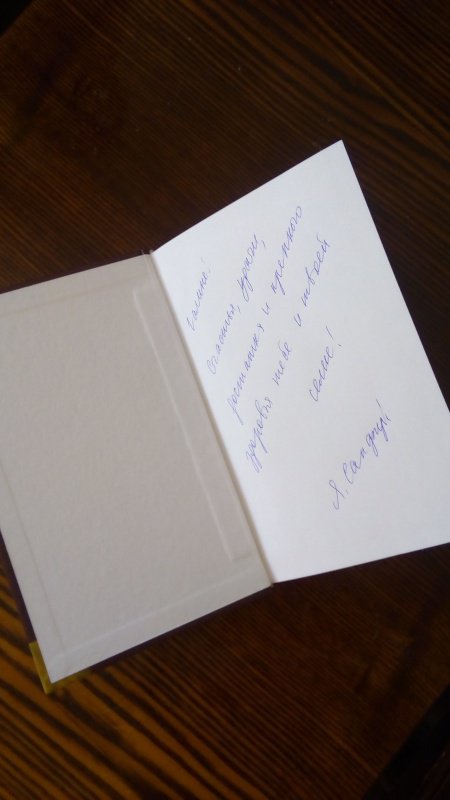 Галине!
Счастья, удачи,
достатка и крепкого
здоровья тебе и твоей
семье!